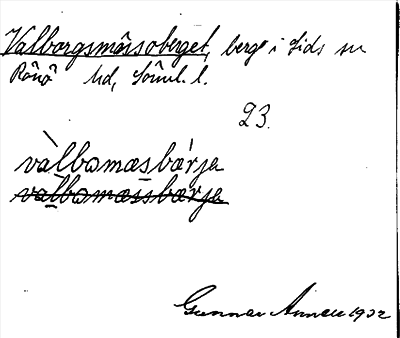 Valborgsmässoberget, berg i Lids sn
Rönö hd, Söml. l.
23.
vàlbomæsbær̀ja
valbomæssbærja
Gunnar 1932